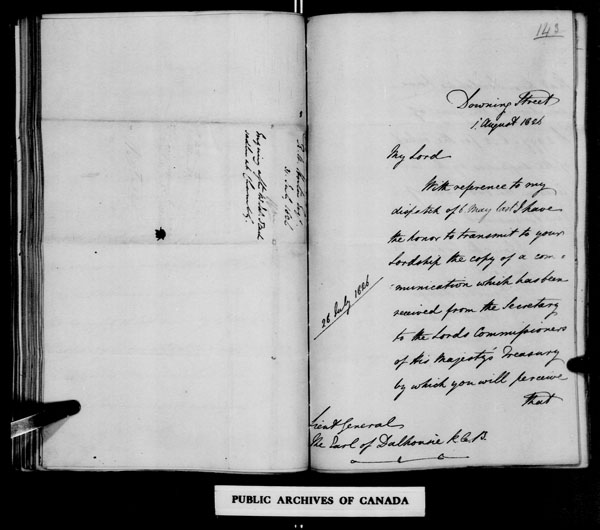 143
Downing Street
1. August 1826
My Lord
With reference to my
dispatch of 6 May last I have
the honor to transmit to your
Lordship the copy of a com-
munication which has been
received from the Secretary
to the Lords Commissioners
of His Majesty's Treasury
by which you will perceive
that
26 July 1826
Lieut General
The Earl of Dalhousie K.C.B.
PUBLIC ARCHIVES OF CANADA